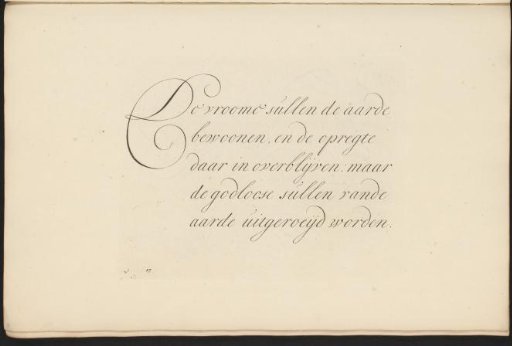 De vroome sullen de aarde
bewoonen, en de opregte
daar in overblijven, maar
de godloose sullen vande
aarde uitgeroeijd worden.